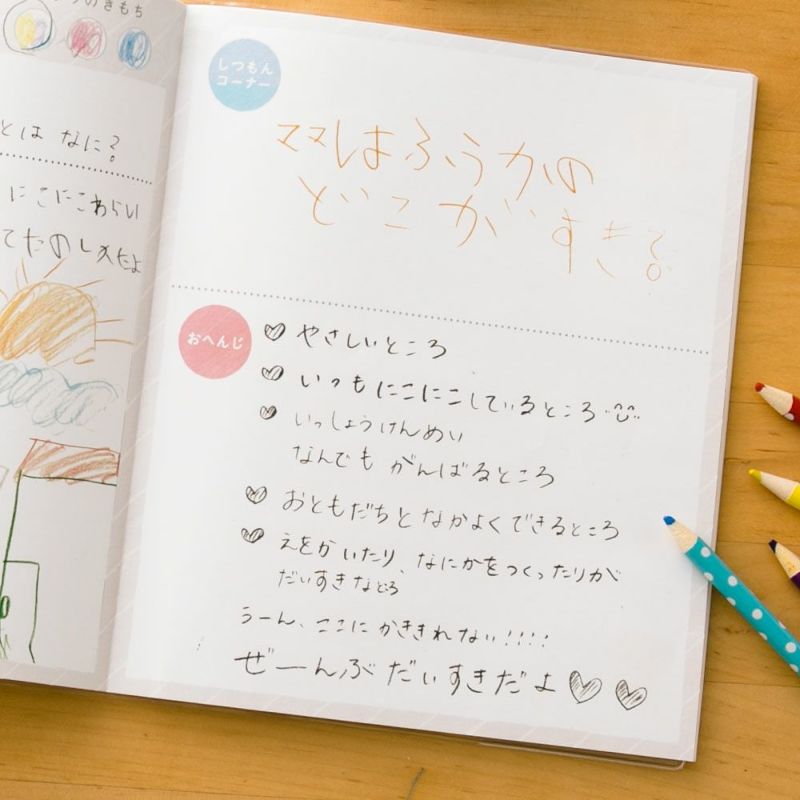 のきもち
とは なに?
にこにこわらい
てたのしんだよ
しつもん
コーナー
ママはふうかの
どこがすき?
おへんじ
やさしいところ
いつもにこにこしているところ
いっしょうけんめい
なんでも がんばるところ
おともだちと なかよくできるところ
えをかいたり、なにかをつくったりが
だいすきなところ
うーん、ここに かききれない!!!!
ぜーんぶ だいすきだよ